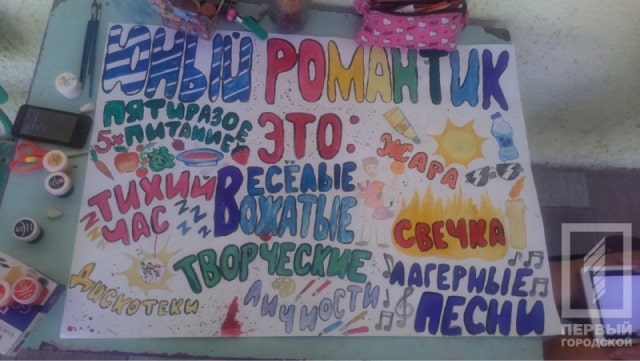 ЮНЫЙ РОМАНТИК
ЭТО:
ПЯТИРАЗОЕ
5х ПИТАНИЕ
ЖАРА
ТИХИЙ
ЧАС
ВЕСЁЛЫЕ
ВОЖАТЫЕ
СВЕЧКА
ТВОРЧЕСКИЕ
ЛИЧНОСТИ
ДИСКОТЕКИ
ЛАГЕРНЫЕ
ПЕСНИ
ПЕРВЫЙ
ГОРОДСКОЙ